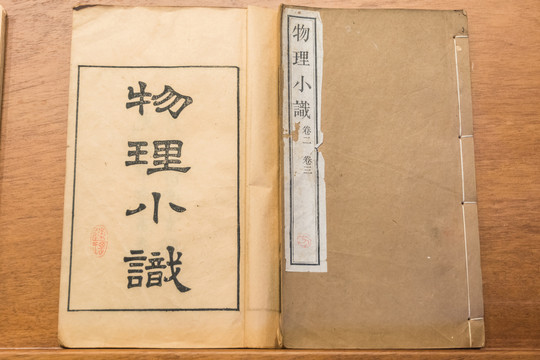 物理小識
物理小識
卷二 卷三